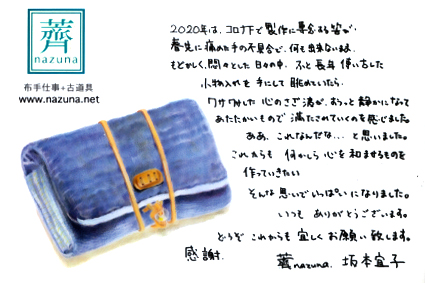 薺
nazuna
布手仕事+古道具
www.nazuna.net
2020年は、コロナ下で製作に集合する筈が、
春先に痛めた手の不具合で、何も出来ないまま、
もどかしく、悶々とした日々の中、ふと長年使い古した
小物入れを手にして眺めていたら
ワサワサした心のさざ波が、すうっと静かになって
あたたかいもので満たされていくのを感じました。
ああ、これなんだな…と思いました。
これからも何かしら心を和ませるものを
作っていきたい
そんな思いでいっぱいになりました。
いつもありがとうございます。
どうぞこれからも宜しくお願い致します。
感謝.
薺nazuna. 坂本宜子